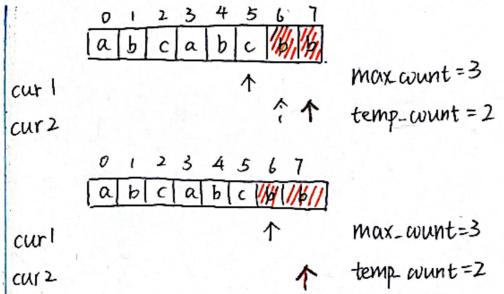 0 1 2 3 4 5 6 7
a b c a b c b b
cur 1 max_count=3
cur 2 temp_count = 2
0 1 2 3 4 5 6 7
a b c a b c b b
cur1 max_count=3
cur2 temp_count=2